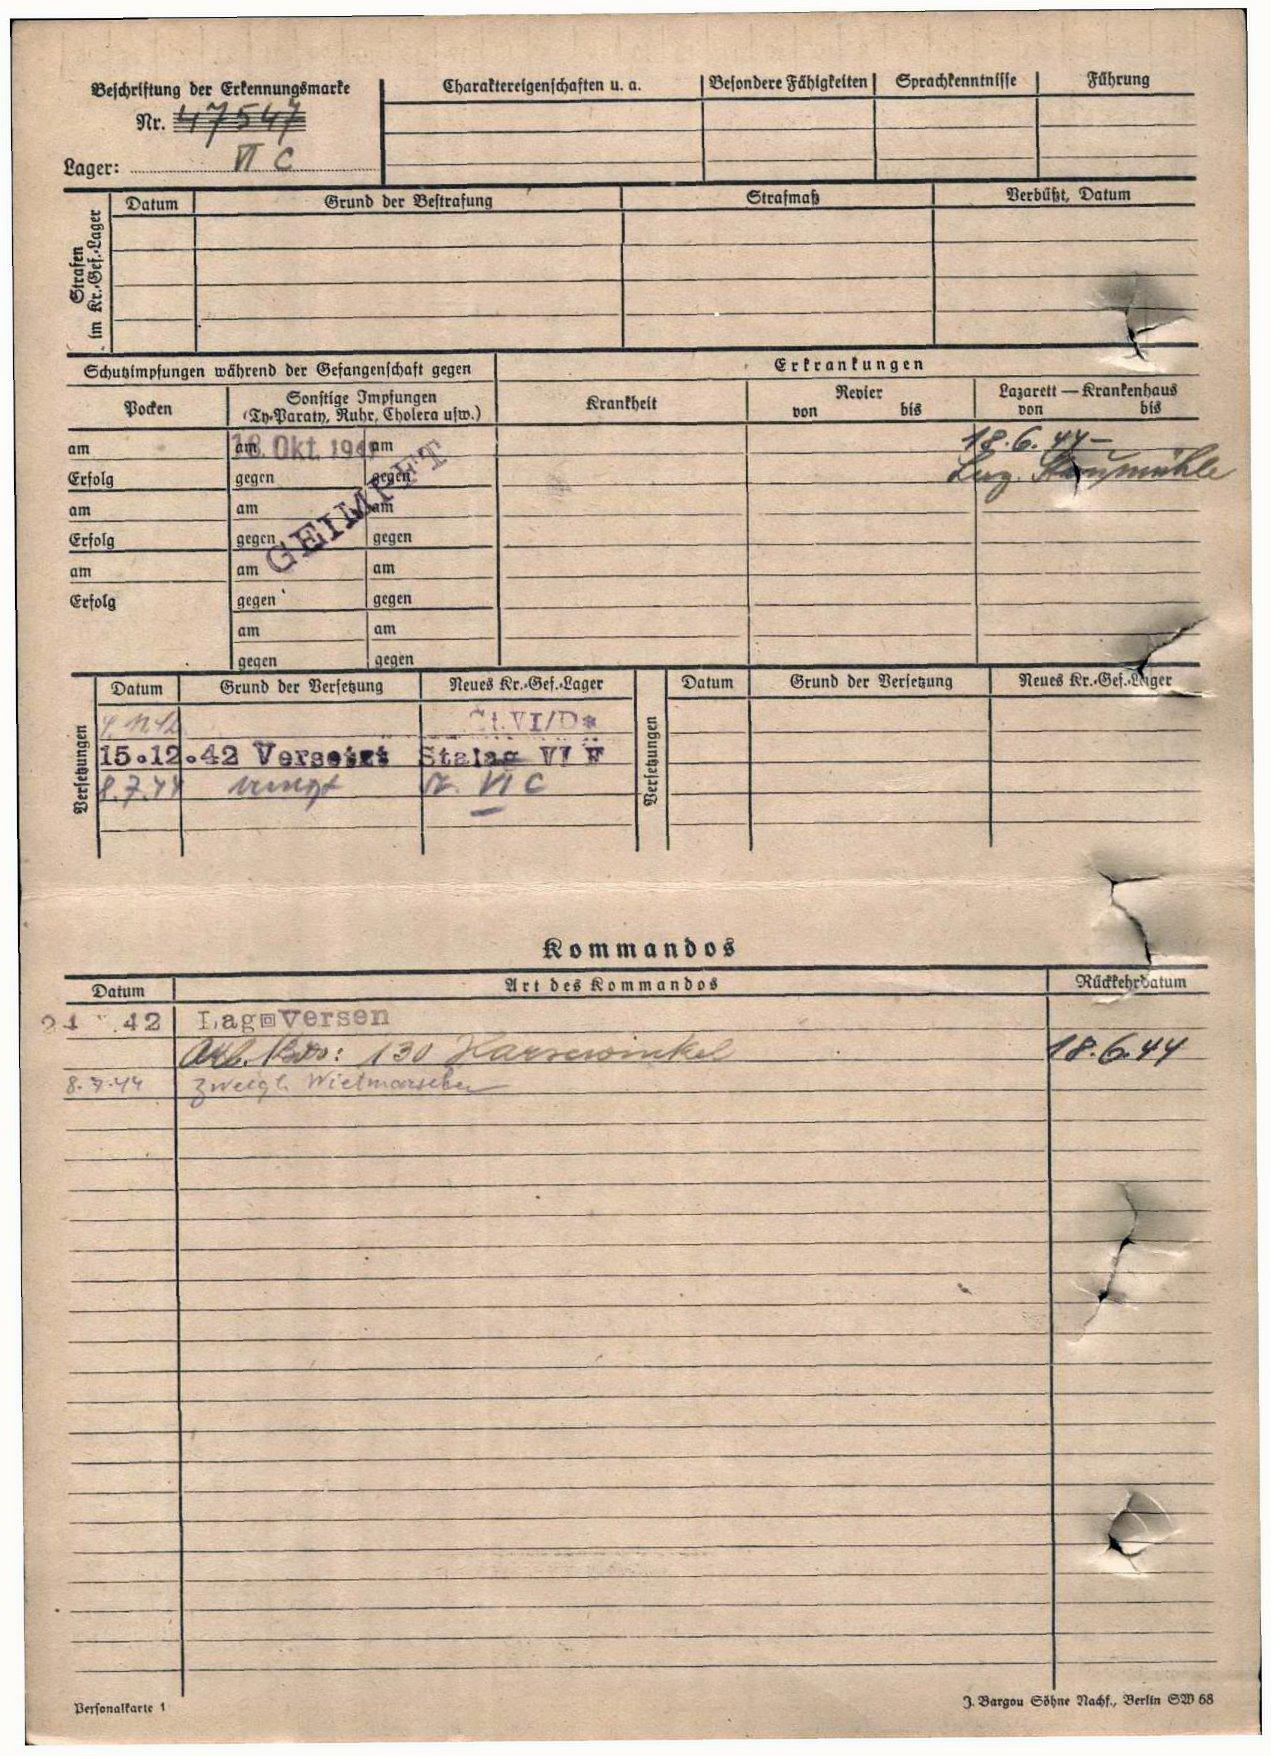 Beschriftung der Erkennungsmarke
Nr. 47547
Lager: VI C
Charaktereigenschaften u. a.
Besondere Fähigkeiten
Sprachkenntnisse
Führung
Strafen im Kr.-Gef.-Lager
Datum
Grund der Bestrafung
Strafmaß
Verbüßt, Datum
Schutzimpfungen während der Gefangenschaft gegen
Erkrankungen
Pocken
Sonstige Impfungen
(Ty-Paraty, Ruhr, Cholera usw.)
Krankheit
Revier
von bis
Lazarett — Krankenhaus
von bis
am
am 18. Okt. 194
am
18.6.44 –
Erfolg
gegen
gegen
Laz. Staumühle
GEIMPFT
am
am
am
Erfolg
gegen
gegen
am
am
am
Erfolg
gegen
gegen
am
am
gegen
gegen
Versetzungen
Datum
Grund der Versetzung
Neues Kr.-Gef.-Lager
Versetzungen
Datum
Grund der Versetzung
Neues Kr.-Gef.-Lager
St. VI/D
15.12.42 Versetzt Stalag VI F
8.7.44 St. VI C
Kommandos
Datum
Art des Kommandos
Rückkehrdatum
42 Lag Versen
Arb. Kdo: 130 Harsewinkel 18.6.44
8.7.44 Zweigl. Wietmarschen
Personalkarte 1
J. Bargou Söhne Nachf., Berlin SW 68